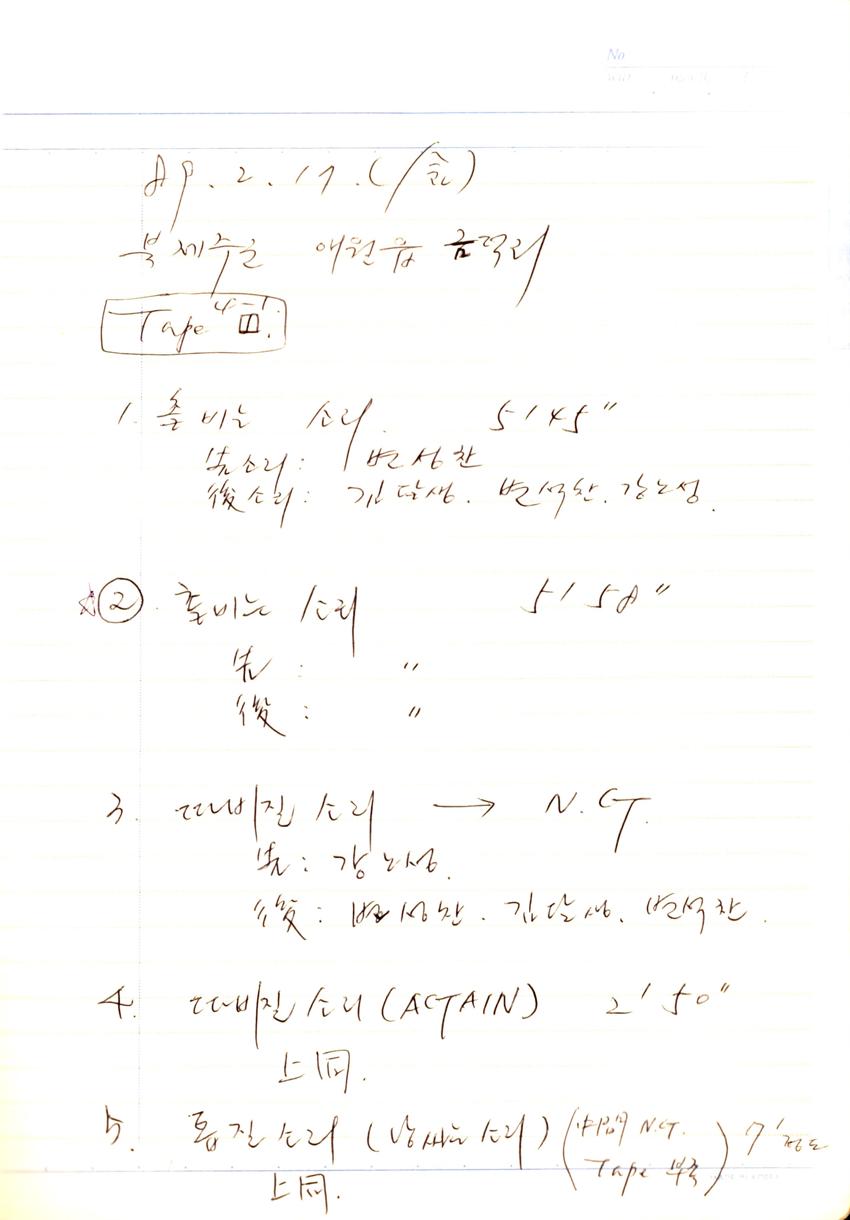 No
89. 2. 17. (金)
북제주군 애월읍 금덕리
Tape 4-1
1. 촐비는 소리. 5'45"
先소리: 변성찬
後소리: 김달생. 변석찬. 강노성.
②. 촐비는 소리 5'58"
先: "
後: "
3. 따비질 소리 → N.G.
先: 강노성.
後: 변성찬. 김달생. 변석찬.
4. 따비질 소리 (AGAIN) 2'50"
上同.
5. 홍질소리 (낭싸는 소리) (N.G. Tape 부족) 7'정도
上同.